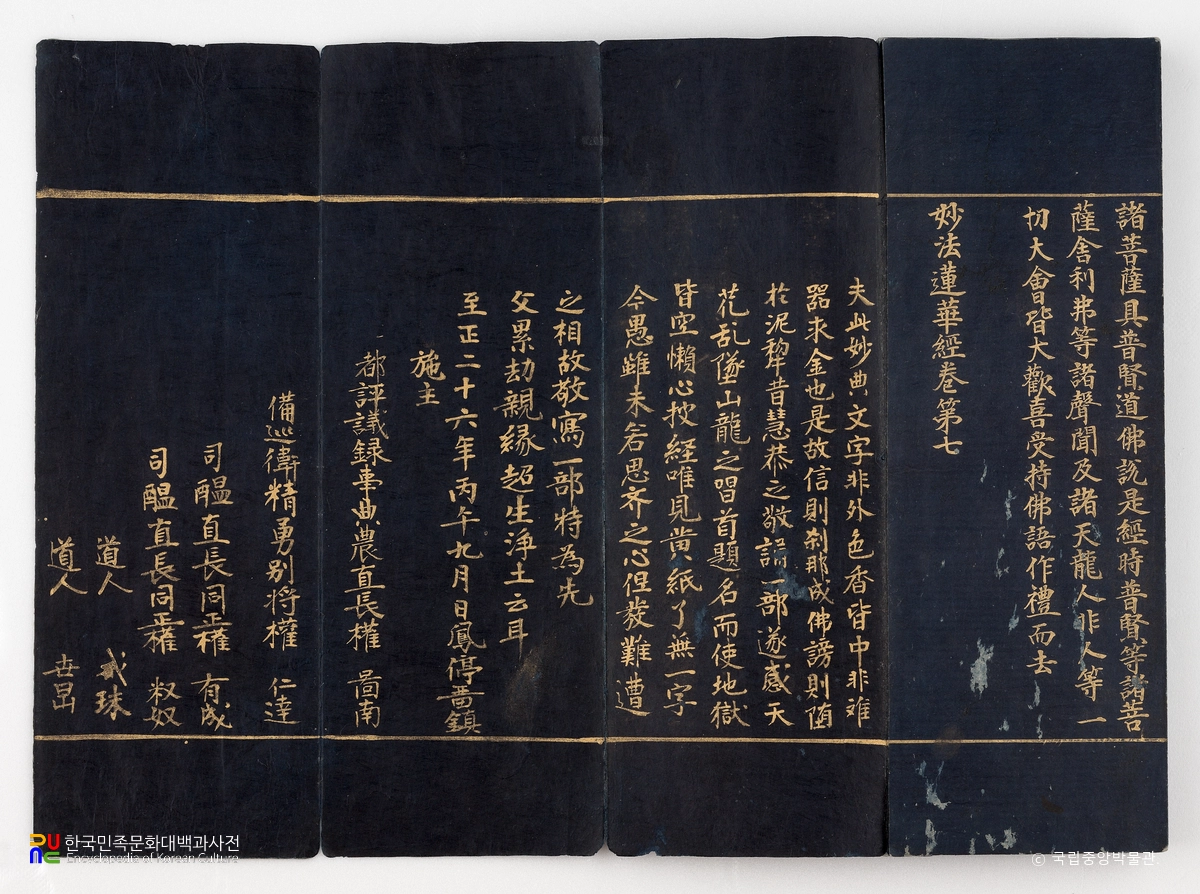 諸菩薩具普賢道佛說是經時普賢等諸菩
薩舍利弗等諸聲聞及諸天龍人非人等一
切大會皆大歡喜受持佛語作禮而去
妙法蓮華經卷第七
夫此妙典文字非外色香皆中非难
器求金也是故信則刹那成佛謗則随
於泥犂昔慧恭之敬誦一部遂感天
花乱墜山龍之習首題名而使地獄
皆空懶心披経唯見黄紙了無一字
今愚雖未若思齐之心但發難遭
之相故敬寫一部特為先
父累劫親緣超生淨土云耳
至正二十六年丙午九月日鳳停嗇鎮
施主
都評議録事典農直長權 啚南
備巡衛精勇别将權 仁達
司醞直長同正權 有成
司醞直長同正權 奴
道人 戒珠
道人
한국민족문화대백과사전
Encyclopedia of Korean Culture
© 국립중앙박물관